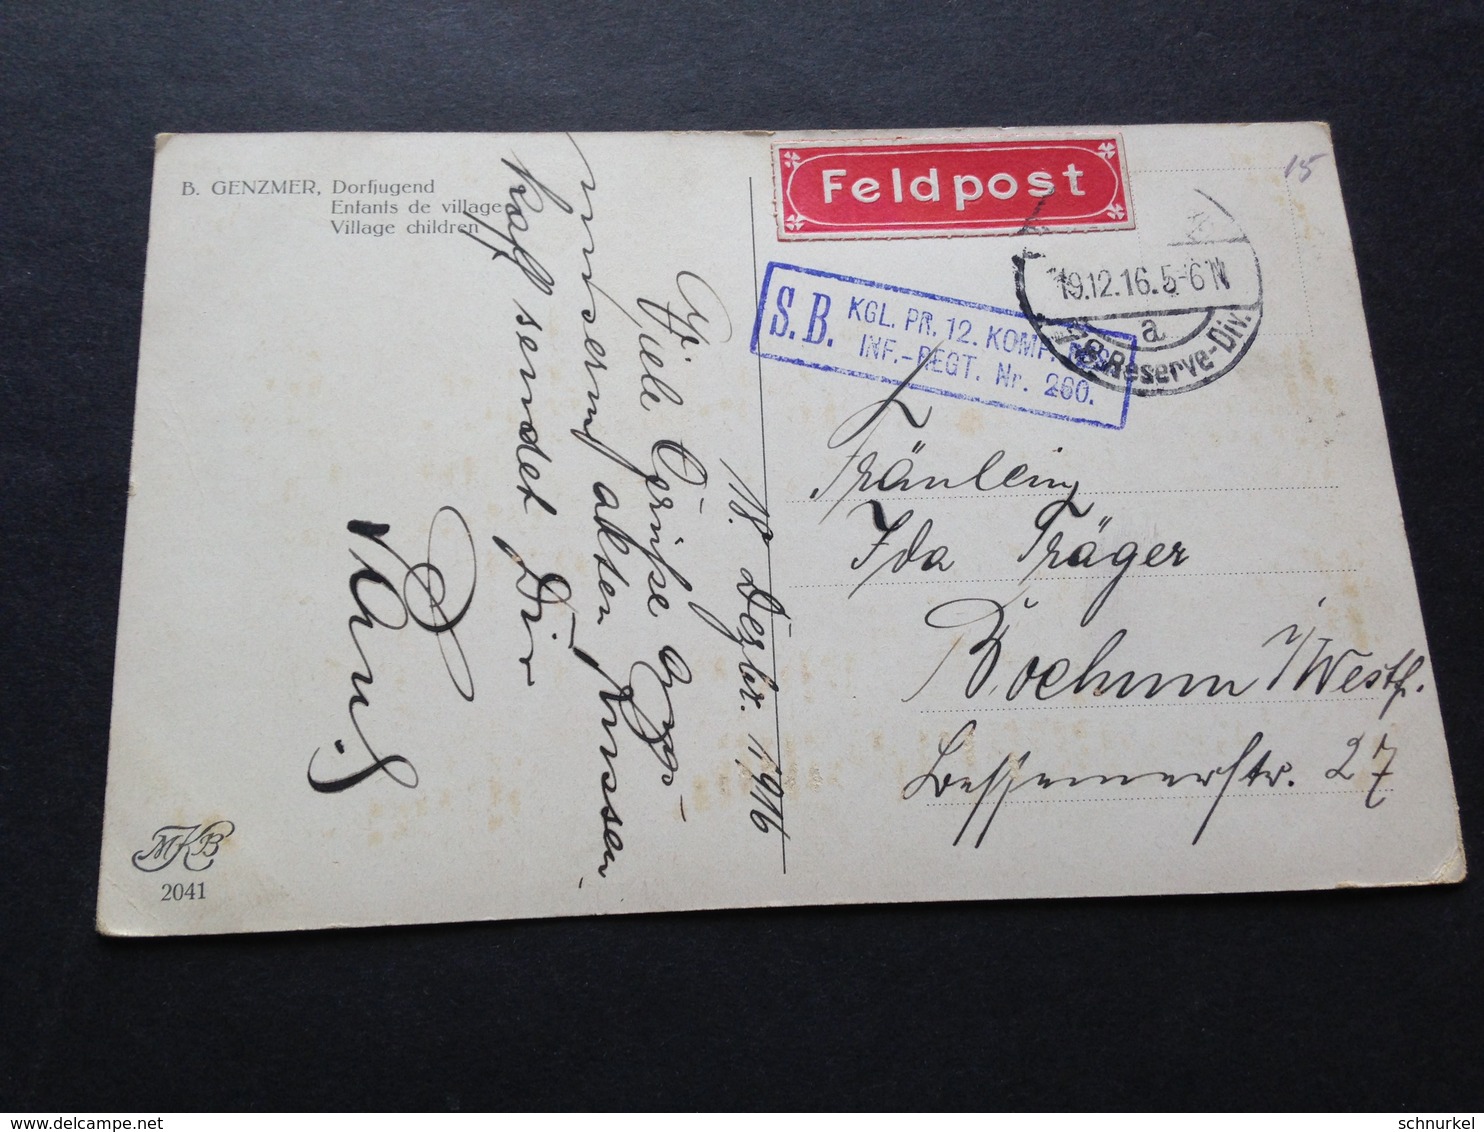 B. GENZMER, Dorfjugend
Enfants de village
Village children
Feldpost
15
19.12.16. 5-6 N
a
Reserve-Div.
S. B. KGL. PR. 12. KOMP. RES.
INF.-REGT. Nr. 260.
Fräulein
Ida Träger
Bochum i/Westf.
Bessemerstr. 27
18. Dezbr. 1916
Viele Grüße aus
unserm alten Russen
kaff sendet Dir
MKB
2041
delcampe.net
schnurkel